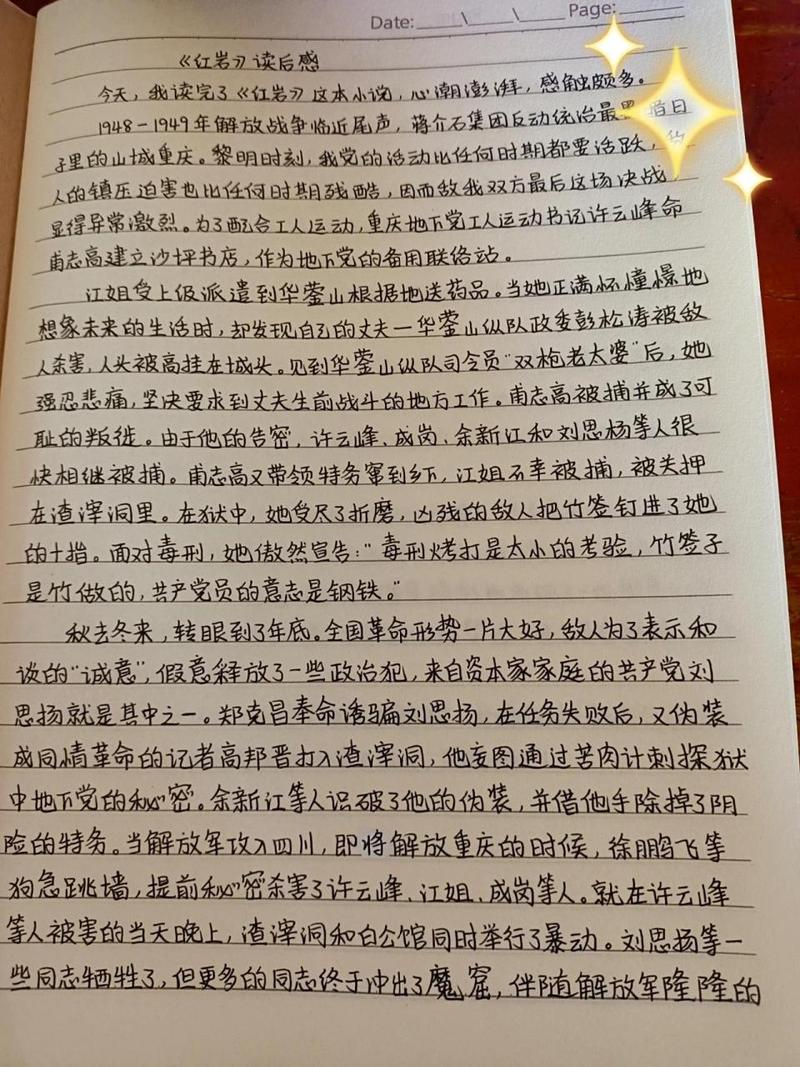 Date: Page:
《红岩》读后感
今天,我读完了《红岩》这本小说,心潮澎湃,感触颇多。
1948-1949年解放战争临近尾声,蒋介石集团反动统治最 日
子里的山城重庆。黎明时刻,我党的活动比任何时期都要活跃,
人的镇压迫害也比任何时期残酷,因而敌我双方最后这场决战,
显得异常激烈。为了配合工人运动,重庆地下党工人运动书记许云峰命
甫志高建立沙坪书店,作为地下党的备用联络站。
江姐受上级派遣到华蓥山根据地送药品。当她正满怀憧憬地
想象未来的生活时,却发现自己的丈夫一华蓥山纵队政委彭松涛被敌
人杀害,人头被高挂在城头。见到华蓥山纵队司令员“双枪老太婆”后,她
强忍悲痛,坚决要求到丈夫生前战斗的地方工作。甫志高被捕并成了可
耻的叛徒。由于他的告密,许云峰、成岗、余新江和刘思杨等人很
快相继被捕。甫志高又带领特务窜到乡下,江姐不幸被捕,被关押
在渣滓洞里。在狱中,她受尽了折磨,凶残的敌人把竹签钉进了她
的十指。面对毒刑,她傲然宣告:“毒刑烤打是太小的考验,竹签子
是竹做的,共产党员的意志是钢铁。”
秋去冬来,转眼到了年底。全国革命形势一片大好,敌人为了表示和
谈的“诚意”,假意释放了一些政治犯,来自资本家家庭的共产党刘
思扬就是其中之一。郑克昌奉命诱骗刘思扬,在任务失败后,又伪装
成同情革命的记者高邦晋打入渣滓洞,他妄图通过苦肉计刺探狱
中地下党的秘密。余新江等人识破了他的伪装,并借他手除掉了阴
险的特务。当解放军攻入四川,即将解放重庆的时候,徐鹏飞等
狗急跳墙,提前秘密杀害了许云峰、江姐、成岗等人。就在许云峰
等人被害的当天晚上,渣滓洞和白公馆同时举行了暴动。刘思扬等一
些同志牺牲了,但更多的同志终于冲出了魔窟,伴随解放军隆隆的